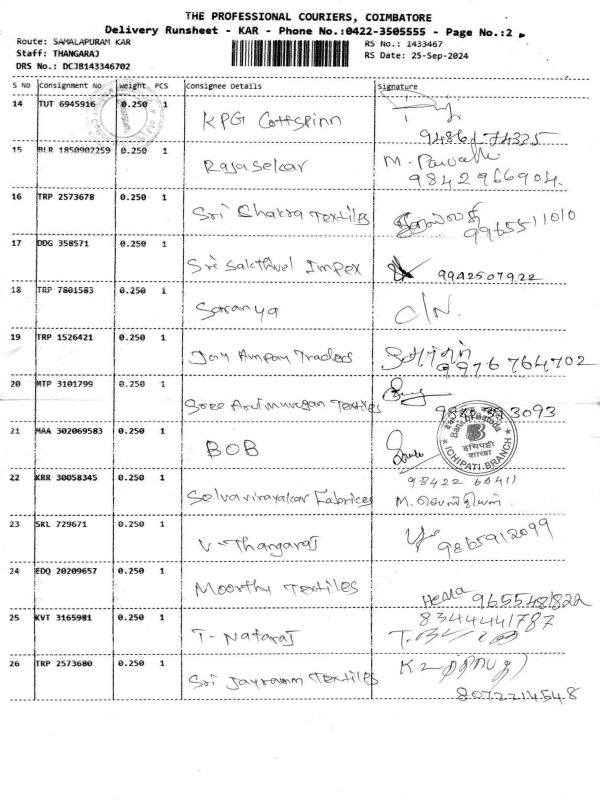 THE PROFESSIONAL COURIERS, COIMBATORE
Delivery Runsheet - KAR - Phone No.:0422-3505555 - Page No.:2
Route: SAMALAPURAM KAR
RS No.: 1433467
Staff: THANGARAJ
RS Date: 25-Sep-2024
DRS No.: DCJB143346702
S No Consignment No Weight PCS Consignee Details Signature
14 TUT 6945916 0.250 1 KPG Cottspinn
15 BLR 1850902259 0.250 1 Rajasekar
9842966904.
16 TRP 2573678 0.250 1 Sri Chakra Textiles
9965511010
17 DDG 358571 0.250 1 Sri Sakthvel Impex 9942507922
18 TRP 7801583 0.250 1 Saranya C/N.
19 TRP 1526421 0.250 1 Jay Ampay Traders
9976764702
20 MTP 3101799 0.250 1 Sree Arulmurugan Textiles
21 MAA 302069583 0.250 1 BOB
Bank of Baroda
ICHIPATI BRANCH
22 KRR 30058345 0.250 1 Selvavinayakar Fabrices 98422 60411
23 SKL 729671 0.250 1 V-Thangaraj 9865912099
24 EDQ 20209657 0.250 1 Moorthy Textiles Hema 9655481822
25 KVT 3165981 0.250 1 T-Nataraj 8344441787
26 TRP 2573680 0.250 1 Sri Jayramm Textiles
8072214548